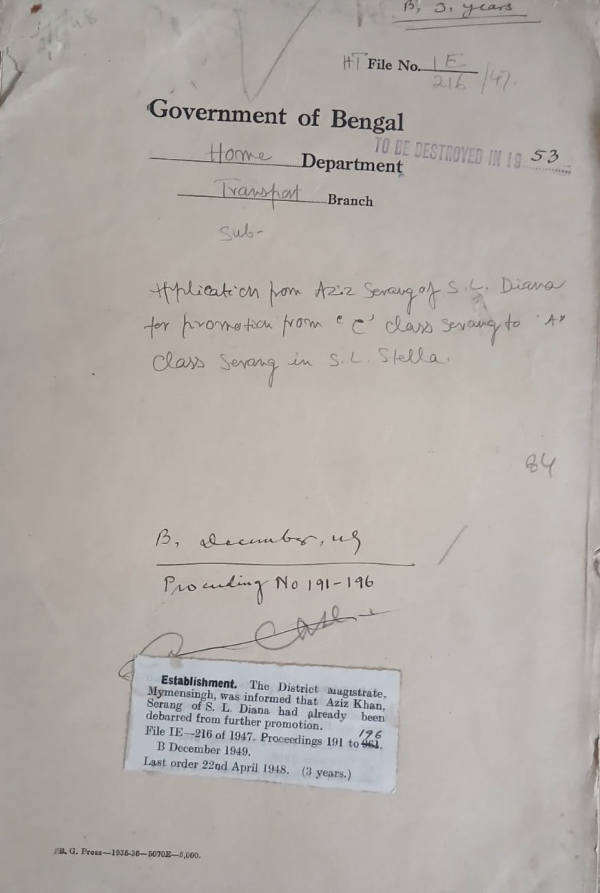 B, 3, years
HT File No. IE
216 /47.
Government of Bengal
Home Department
TO BE DESTROYED IN 19 53
Transport Branch
Sub-
Application from Aziz Serang of S. L. Diana
for promotion from 'C' class serang to 'A'
Class Serang in S. L. Stella.
84
B, December, 49
Proceeding No 191-196
Establishment. The District Magistrate,
Mymensingh, was informed that Aziz Khan,
Serang of S. L. Diana had already been
debarred from further promotion.
File IE—216 of 1947. Proceedings 191 to 196.
B December 1949.
Last order 22nd April 1948. (3 years.)
B. G. Press—1935-36—5070E—5,000.